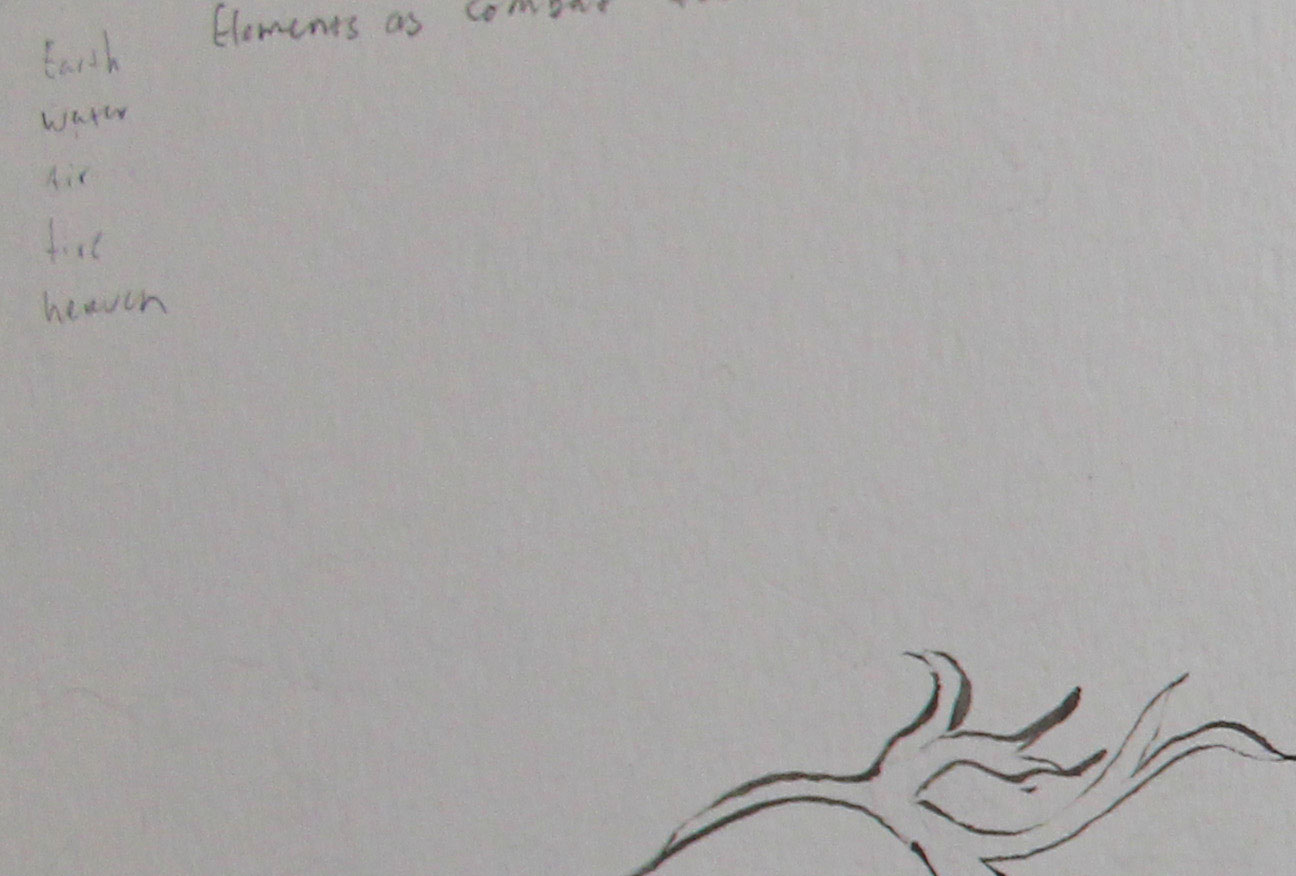 Elements as combat
Earth
water
Air
fire
heaven